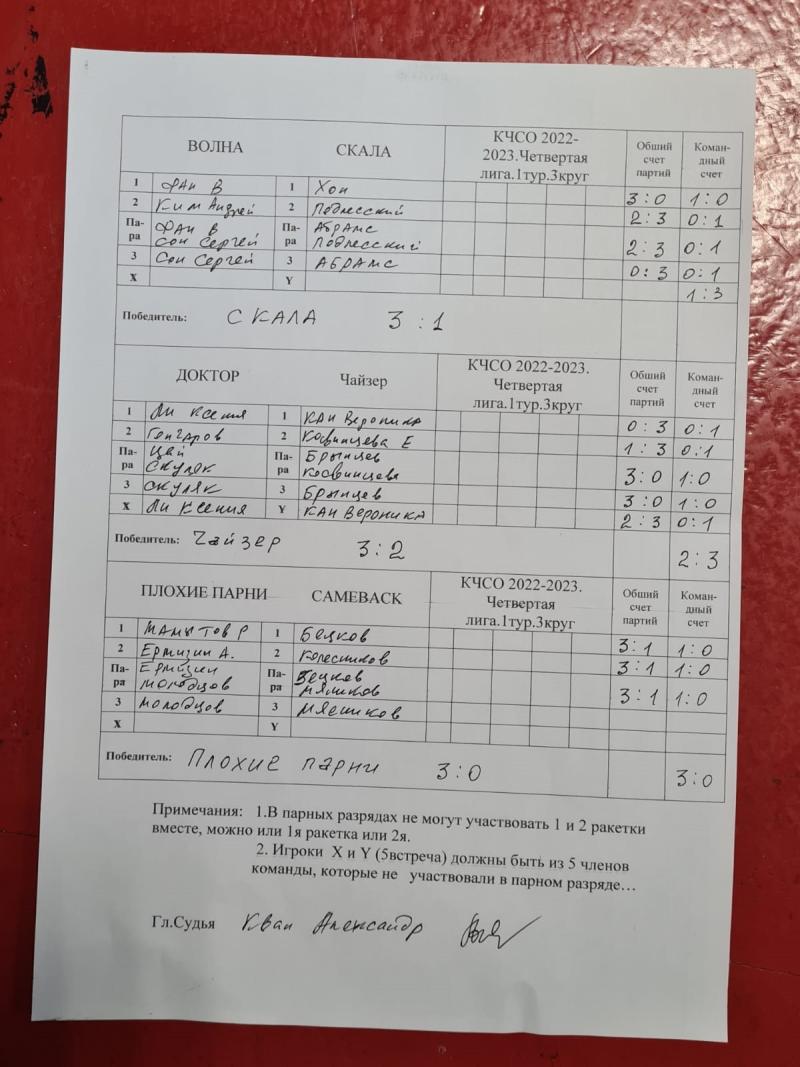 ВОЛНА СКАЛА КЧСО 2022- Обший Коман-
2023.Четвертая счет дный
лига.1тур.3круг партий счет
1 Фан В 1 Хон 3:0 1:0
2 Ким Андрей 2 Подлесский 2:3 0:1
Па- Фан В Па- Абрамс
ра Сон Сергей ра Подлесский 2:3 0:1
3 Сон Сергей 3 АБРАМС 0:3 0:1
X Y 1:3
Победитель: СКАЛА 3:1
ДОКТОР Чайзер КЧСО 2022-2023. Обший Коман-
Четвертая счет дный
лига.1тур.3круг партий счет
1 Ли Ксения 1 Кан Вероника 0:3 0:1
2 Гончаров 2 Косвинцева Е 1:3 0:1
Па- Цай Па- Брынцев
ра Скуляк ра Косвинцева 3:0 1:0
3 Скуляк 3 Брынцев 3:0 1:0
X Ли Ксения Y Кан Вероника 2:3 0:1
Победитель: Чайзер 3:2 2:3
ПЛОХИЕ ПАРНИ CAMEBACK КЧСО 2022-2023. Обший Коман-
Четвертая счет дный
лига.1тур.3круг партий счет
1 Мамытов Р 1 Бецков 3:1 1:0
2 Ермизин А. 2 Колесников 3:1 1:0
Па- Ермизин Па- Бецков
ра Молодцов ра Мясников 3:1 1:0
3 Молодцов 3 Мясников
X Y
Победитель: Плохие парни 3:0 3:0
Примечания: 1.В парных разрядах не могут участвовать 1 и 2 ракетки
вместе, можно или 1я ракетка или 2я.
2. Игроки X и Y (5встреча) должны быть из 5 членов
команды, которые не участвовали в парном разряде…
Гл.Судья Кван Александр